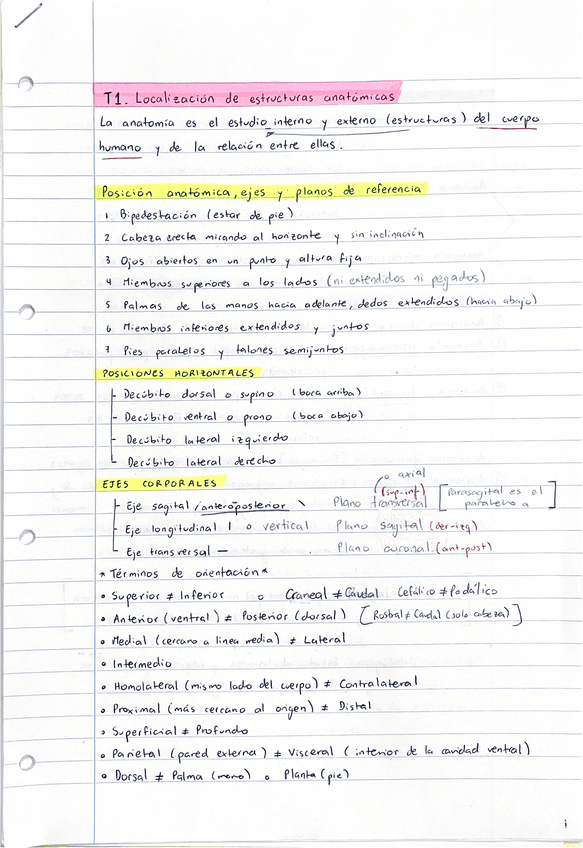 T1. Localización de estructuras anatómicas
La anatomía es el estudio interno y externo (estructuras) del cuerpo
humano y de la relación entre ellas.
Posición anatómica, ejes y planos de referencia
1 Bipedestación (estar de pie)
2 Cabeza erecta mirando al horizonte y sin inclinación
3 Ojos abiertos en un punto y altura fija
4 Miembros superiores a los lados (ni extendidos ni pegados)
5 Palmas de las manos hacia adelante, dedos extendidos (hacia abajo)
6 Miembros inferiores extendidos y juntos
7 Pies paralelos y talones semijuntos
POSICIONES HORIZONTALES
Decúbito dorsal o supino (boca arriba)
Decúbito ventral o prono (boca abajo)
Decúbito lateral izquierdo
Decúbito lateral derecho
EJES CORPORALES
o axial
(sup-inf)
Eje sagital /anteroposterior \ Plano transversal [Parasagital es el paralelo a]
Eje longitudinal | o vertical Plano sagital (der-izq)
Eje transversal — Plano coronal (ant-post)
*Términos de orientación*
• Superior ≠ Inferior o Craneal ≠ Caudal Cefálico ≠ Podálico
• Anterior (ventral) ≠ Posterior (dorsal) [Rostral ≠ Caudal (solo cabeza)]
• Medial (cercano a linea media) ≠ Lateral
• Intermedio
• Homolateral (mismo lado del cuerpo) ≠ Contralateral
• Proximal (más cercano al origen) ≠ Distal
• Superficial ≠ Profundo
• Parietal (pared externa) ≠ Visceral (interior de la cavidad ventral)
• Dorsal ≠ Palma (mano) o Planta (pie)
1